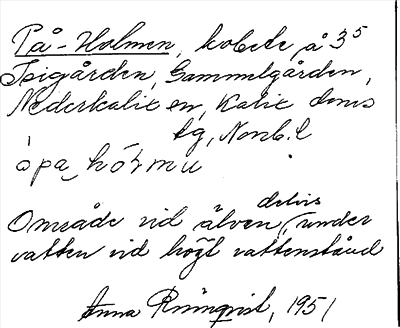 På-Holmen, kobete å 3⁵
Isigården, Gammelgården,
Nederkalix en, Kalix doms
tg, Nonb. l
òpa hól mu
delvis
Område vid älven, (under
vatten vid högt vattenstånd
Anna Rönnqvist, 1951